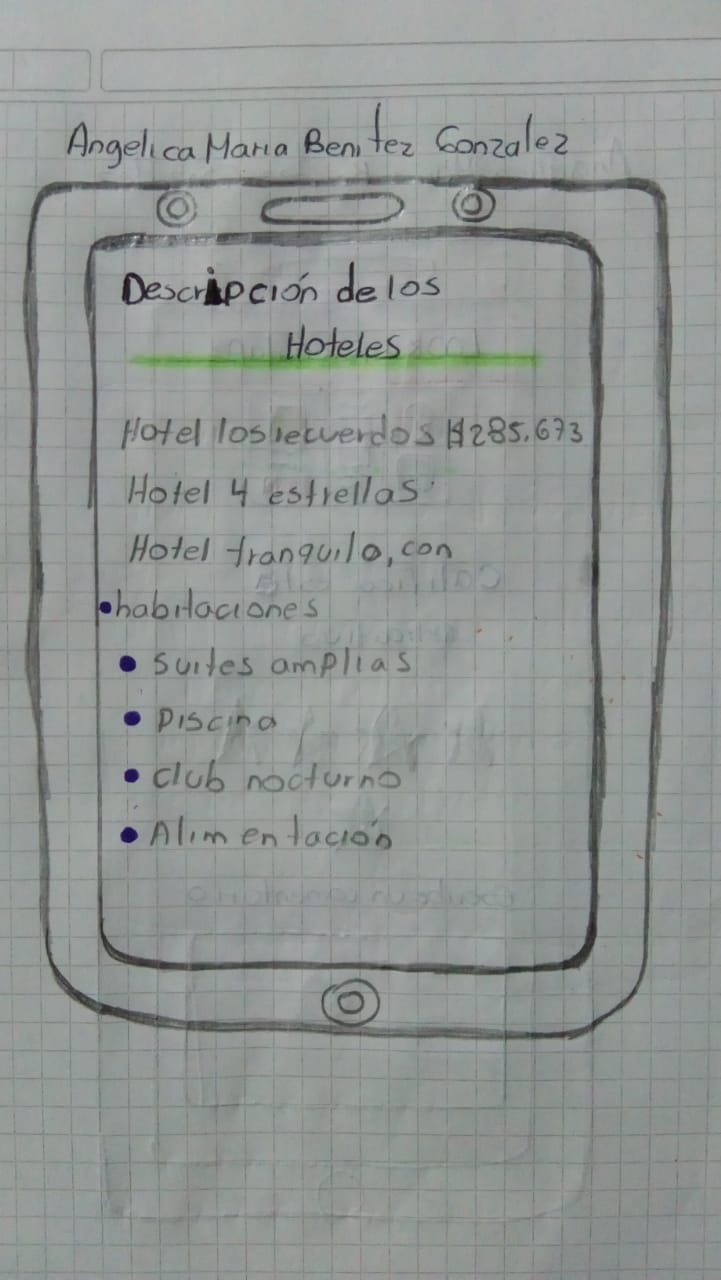 Angelica Maria Benitez Gonzalez
Descripción de los
Hoteles
Hotel los recuerdos $285.673
Hotel 4 estrellas
Hotel tranquilo, con
•habitaciones
• suites amplias
• Piscina
• club nocturno
• Alimentación